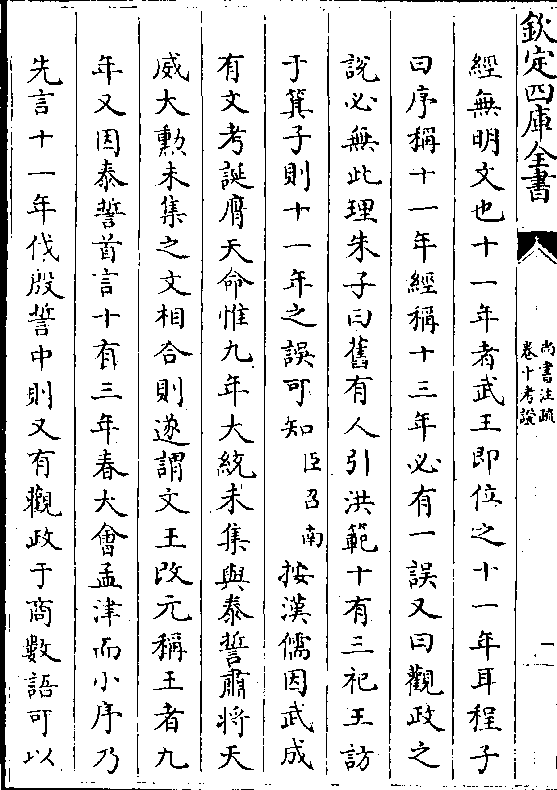 欽定四庫全書
尚書注疏
卷十考證
一
經無明文也十一年者武王即位之十一年耳程子
曰序稱十一年經稱十三年必有一誤又曰觀政之
說必無此理朱子曰舊有人引洪範十有三祀王訪
于箕子則十一年之誤可知臣召南按漢儒因武成
有文考誕膺天命惟九年大統未集與泰誓肅將天
威大勲未集之文相合則遂謂文王改元稱王者九
年又因泰誓首言十有三年春大會孟津而小序乃
先言十一年伐殷誓中則又有觀政于商數語可以